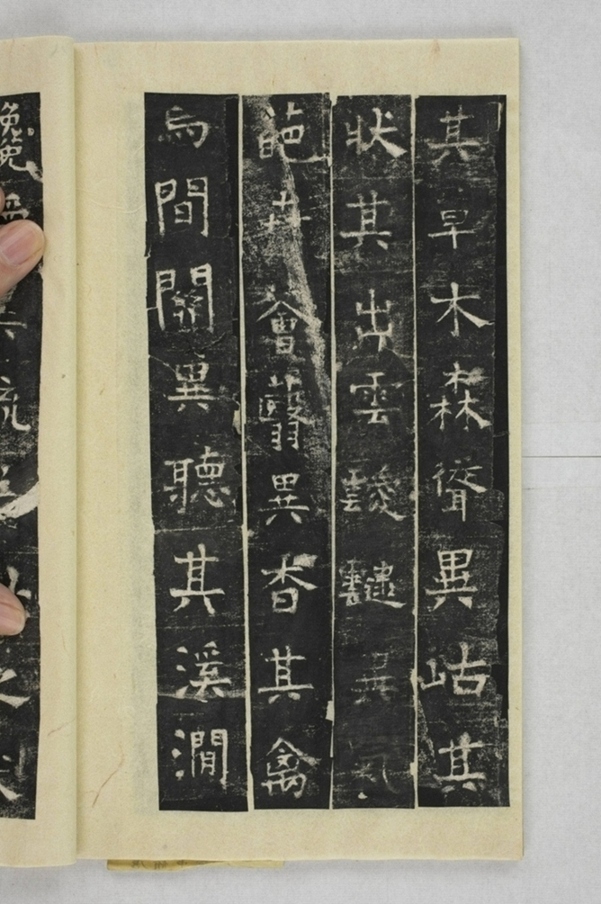 其早木森聳異岵其
狀其出雲靉靆異氣
皅卉薈蘙異香其禽
鳥間關異聽其溪澗